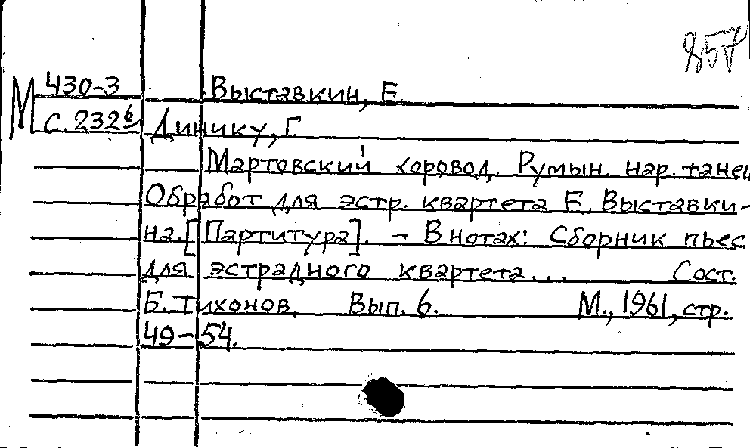 857
М 430-3 Выставкин, Е
С.232б Динику, Г.
Мартовский хоровод. Румын. нар. танец
Обработ для эстр. квартета Е. Выставки-
на. [Партитура]. – В нотах: Сборник пьес
для эстрадного квартета... Сост.
Б. Тихонов. Вып. 6. М., 1961, стр.
49–54.